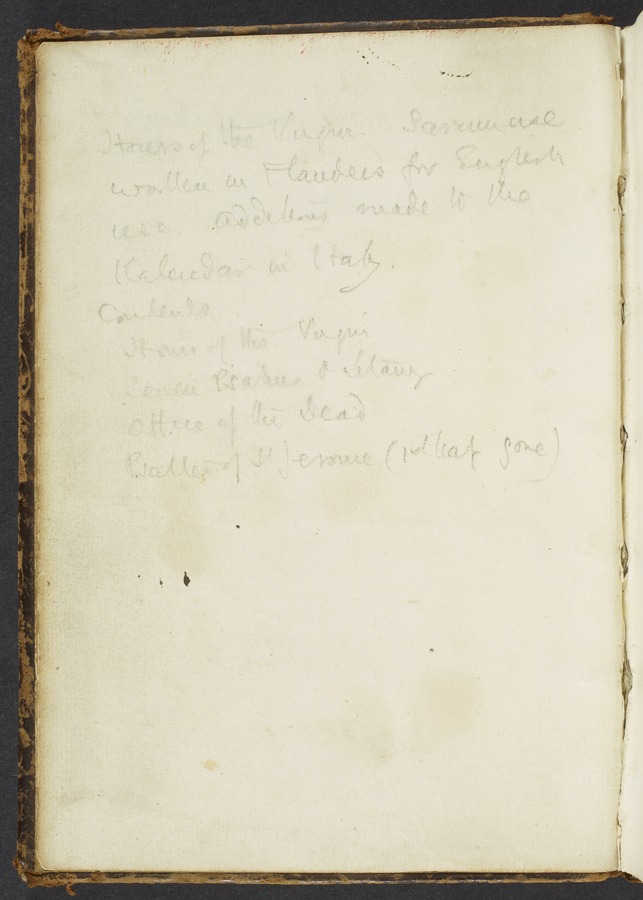 Hours of the Virgin. Sarum use
written in Flanders for English
use. Additions made to the
Kalendar in Italy.
Contents
Hours of the Virgin
Seven Psalms & Litany
Office of the Dead
Psalter of St Jerome (1st leaf gone)